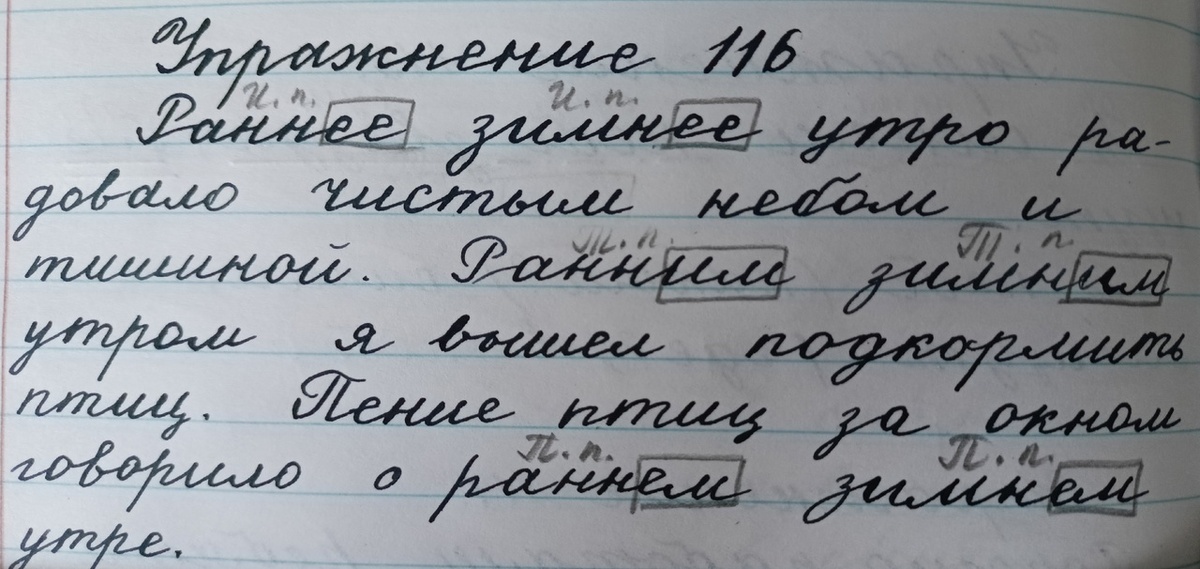 Упражнение 116
И. п. И. п.
Раннее зимнее утро ра-
довало чистым небом и
тишиной. Ранним зимним
Т. п. Т. п.
утром я вышел подкормить
птиц. Пение птиц за окном
П. п. П. п.
говорило о раннем зимнем
утре.